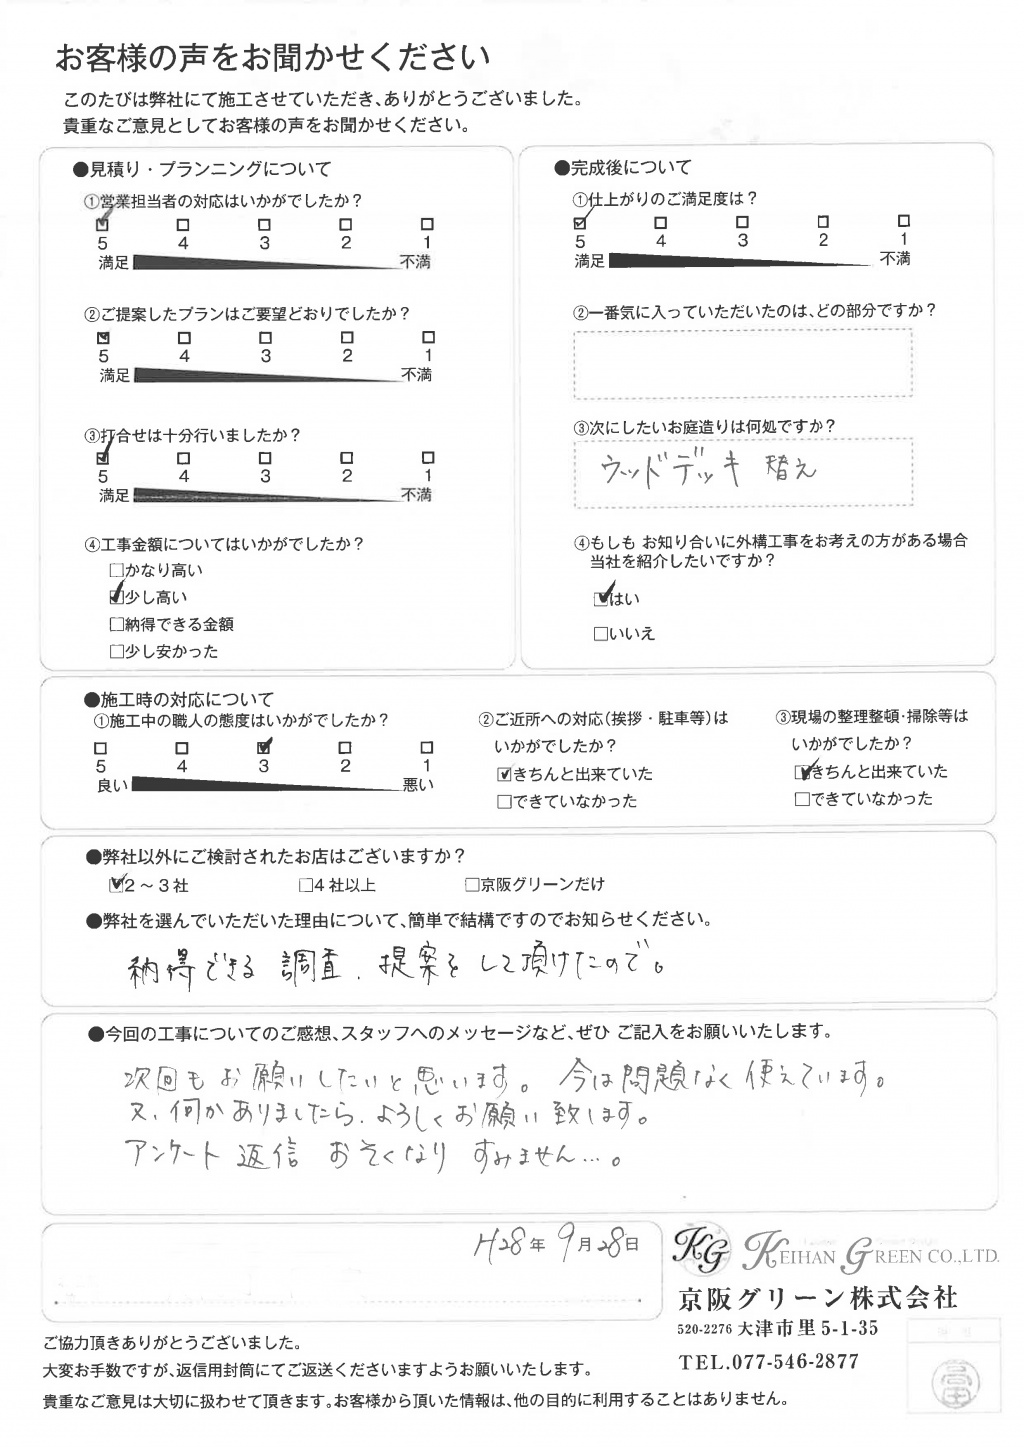 お客様の声をお聞かせください
このたびは弊社にて施工させていただき、ありがとうございました。
貴重なご意見としてお客様の声をお聞かせください。
●見積り・プランニングについて
①営業担当者の対応はいかがでしたか？
5 4 3 2 1
満足 不満
②ご提案したプランはご要望どおりでしたか？
5 4 3 2 1
満足 不満
③打合せは十分行いましたか？
5 4 3 2 1
満足 不満
④工事金額についてはいかがでしたか？
□かなり高い
☑少し高い
□納得できる金額
□少し安かった
●完成後について
①仕上がりのご満足度は？
5 4 3 2 1
満足 不満
②一番気に入っていただいたのは、どの部分ですか？
③次にしたいお庭造りは何処ですか？
ウッドデッキ 替え
④もしも お知り合いに外構工事をお考えの方がある場合
当社を紹介したいですか？
☑はい
□いいえ
●施工時の対応について
①施工中の職人の態度はいかがでしたか？
5 4 3 2 1
良い 悪い
②ご近所への対応（挨拶・駐車等）は
いかがでしたか？
☑きちんと出来ていた
□できていなかった
③現場の整理整頓・掃除等は
いかがでしたか？
☑きちんと出来ていた
□できていなかった
●弊社以外にご検討されたお店はございますか？
☑2～3社 □4社以上 □京阪グリーンだけ
●弊社を選んでいただいた理由について、簡単で結構ですのでお知らせください。
納得できる 調査、提案をして頂けたので。
●今回の工事についてのご感想、スタッフへのメッセージなど、ぜひ ご記入をお願いいたします。
次回もお願いしたいと思います。 今は問題なく使えています。
又、何かありましたら、よろしくお願い致します。
アンケート返信 おそくなり すみません…。
H28年 9月28日
KG KEIHAN GREEN CO.,LTD.
京阪グリーン株式会社
520-2276 大津市里5-1-35
TEL.077-546-2877
ご協力頂きありがとうございました。
大変お手数ですが、返信用封筒にてご返送くださいますようお願いいたします。
貴重なご意見は大切に扱わせて頂きます。お客様から頂いた情報は、他の目的に利用することはありません。